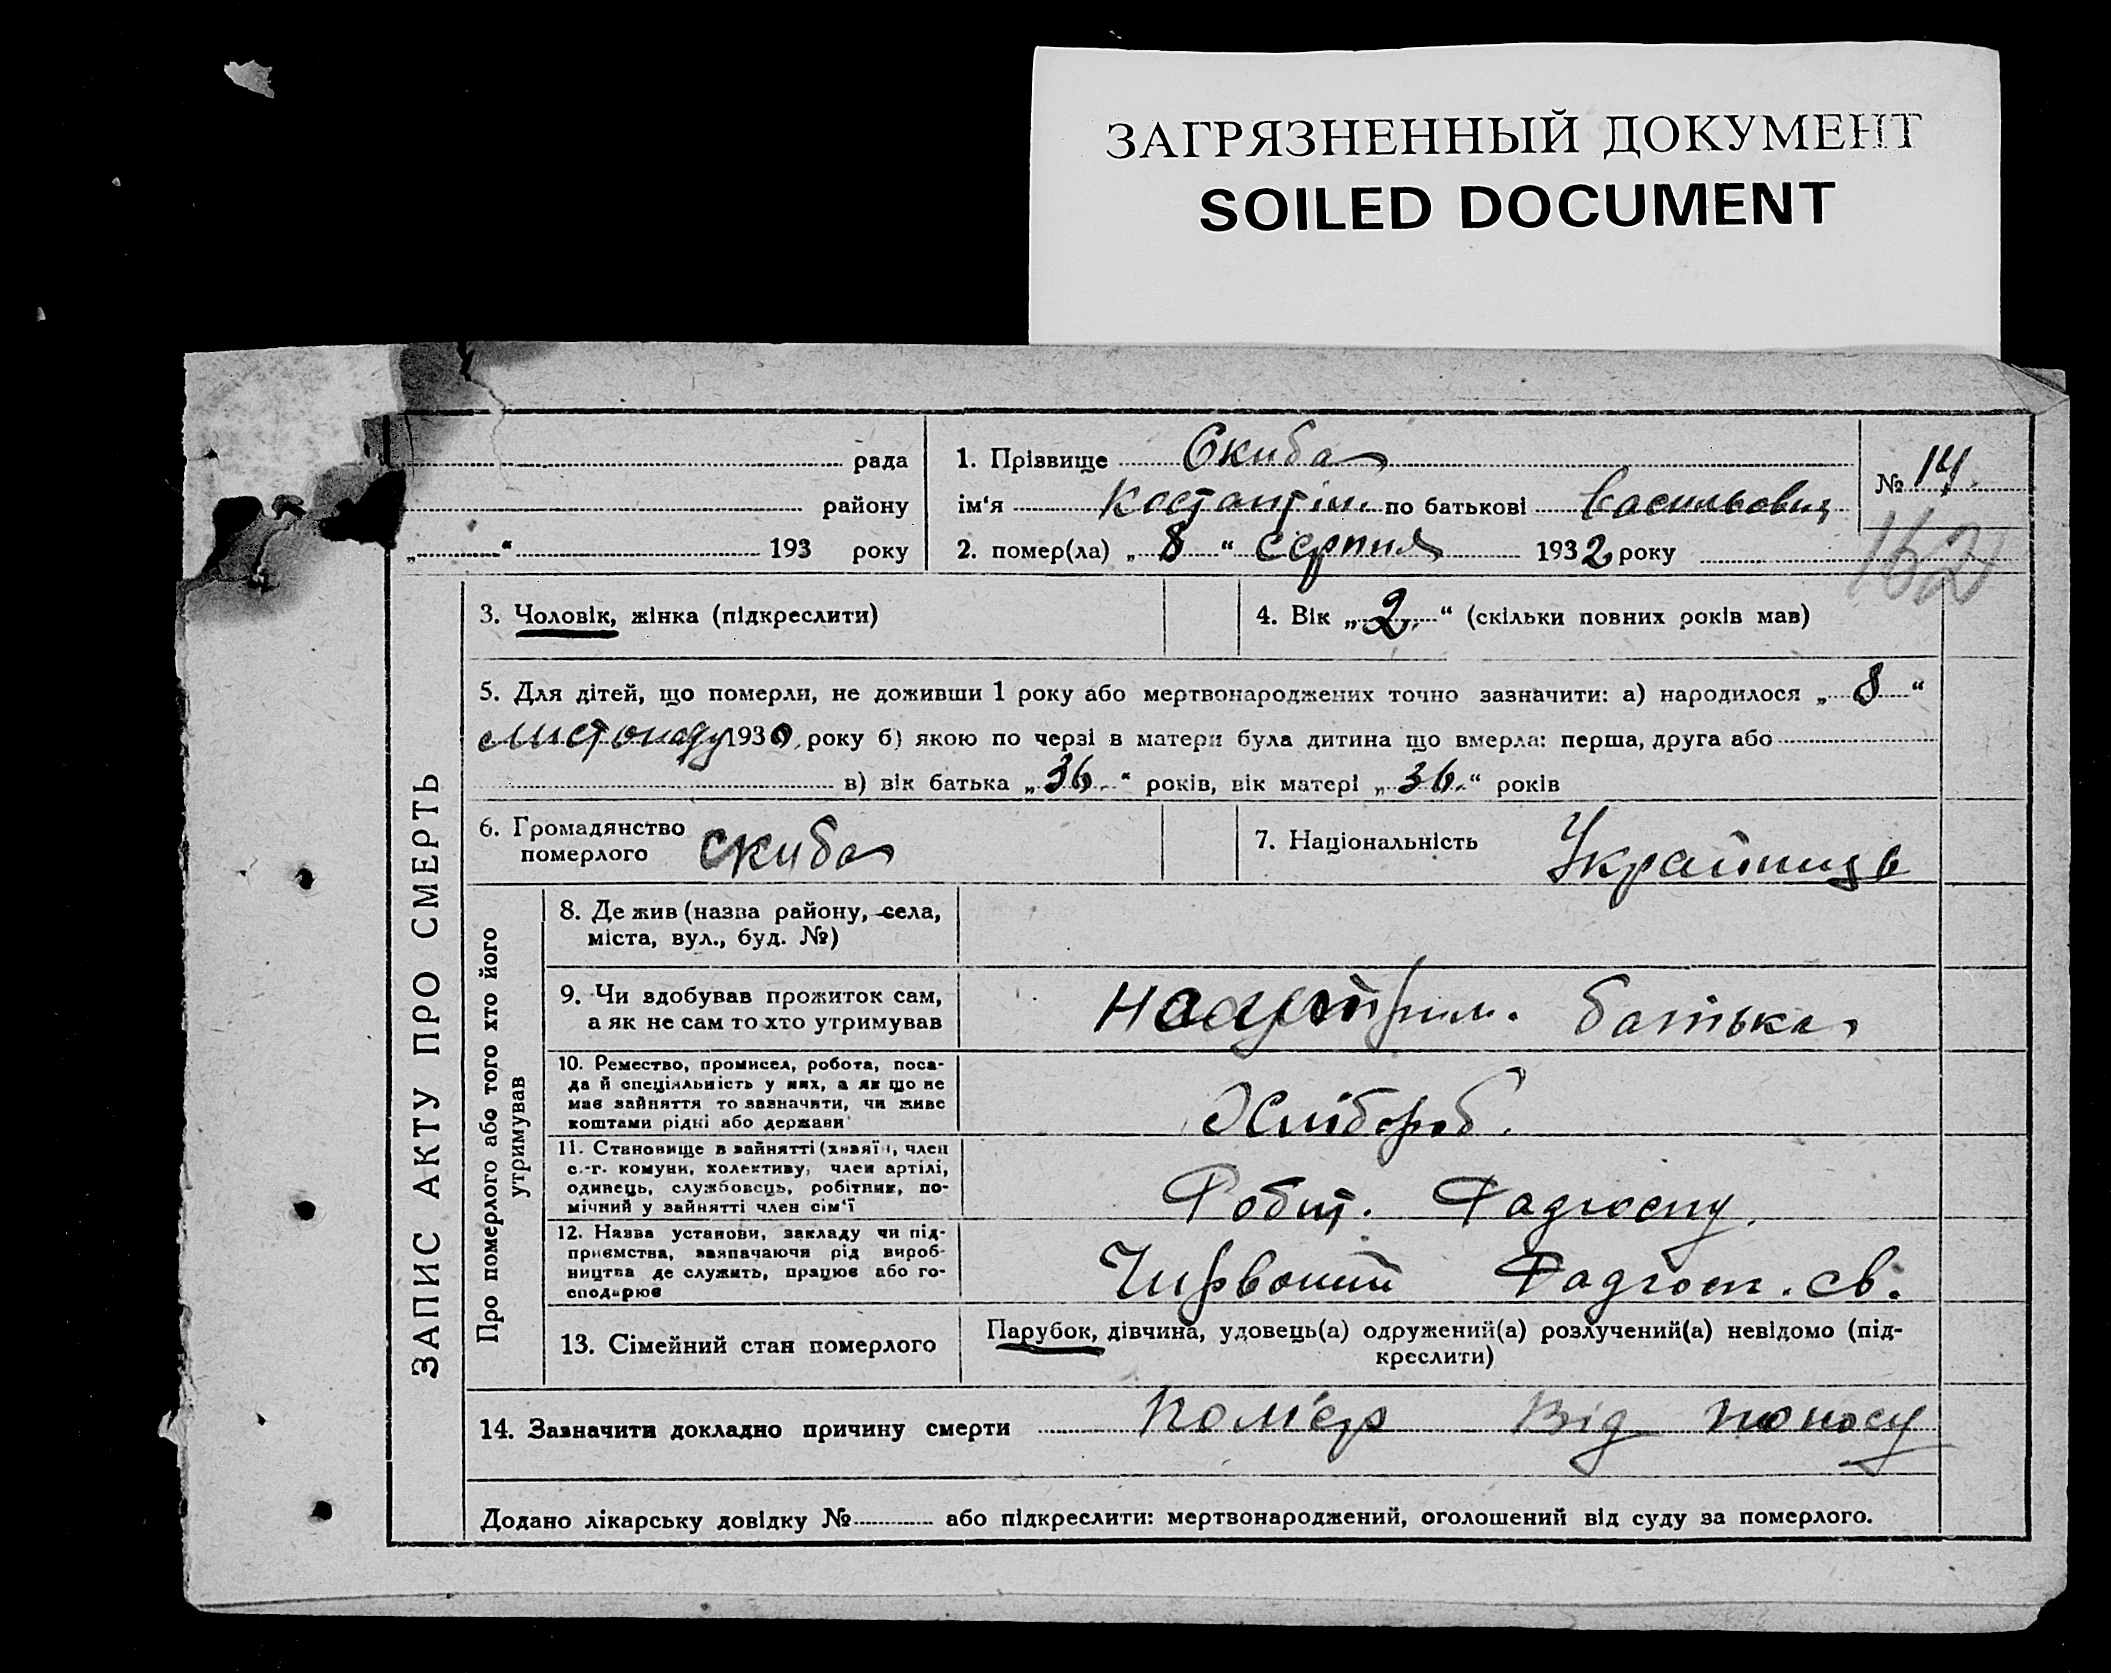 ЗАГРЯЗНЕННЫЙ ДОКУМЕНТ
SOILED DOCUMENT
рада
району
„ “ 193 року
1. Прізвище Скиба
ім‘я Костантін. по батькові Васильович
2. помер(ла) „ 8 “ Серпня 1932 року
№ 14.
162
ЗАПИС АКТУ ПРО СМЕРТЬ
3. Чоловік, жінка (підкреслити)
4. Вік „ 2. “ (скільки повних років мав)
5. Для дітей, що померли, не доживши 1 року або мертвонароджених точно зазначити: а) народилося „ 8 “
листопаду 1930 року б) якою по черзі в матери була дитина що вмерла: перша, друга або
в) вік батька „ 36. “ років, вік матері „ 36. “ років
6. Громадянство
померлого Скиба
7. Національність Українць
Про померлого або того хто його
утримував
8. Де жив (назва району, села,
міста, вул., буд. №)
9. Чи здобував прожиток сам,
а як не сам то хто утримував
батька
10. Ремество, промисел, робота, поса-
да й спеціяльність у них, а як що не
має зайняття то зазначити, чи живе
коштами рідні або держави
Хлібороб.
11. Становище в зайнятті (хазяїн, член
с.-г. комуни, колективу, член артілі,
одинець, службовець, робітник, по-
мічний у зайнятті член сім‘ї
Робит. Радгоспу.
12. Назва установи, закладу чи під-
приємства, зазначаючи рід вироб-
ництва де служить, працює або го-
сподарює
Чирвоний Радгосп. св.
13. Сімейний стан померлого
Парубок, дівчина, удовець(а) одружений(а) розлучений(а) невідомо (під-
креслити)
14. Зазначити докладно причину смерти Помер Від поносу
Додано лікарську довідку № або підкреслити: мертвонароджений, оголошений від суду за померлого.